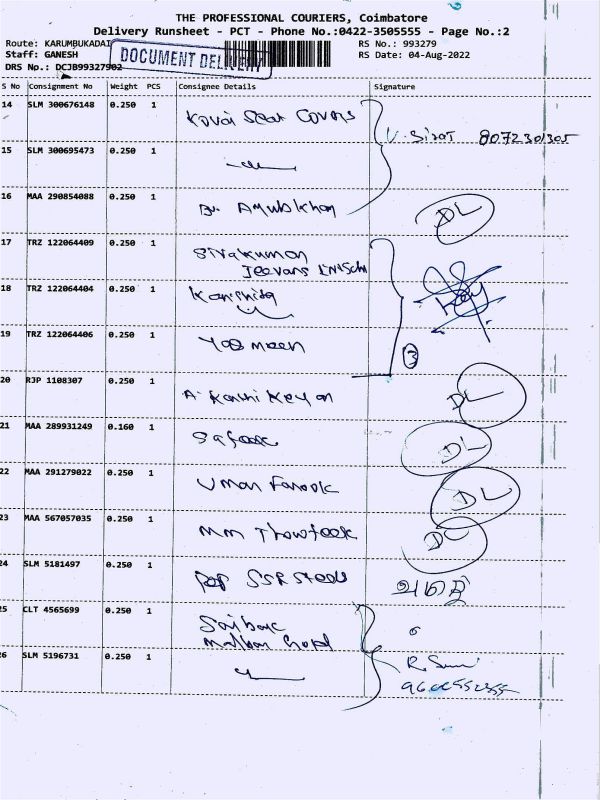 THE PROFESSIONAL COURIERS, Coimbatore
Delivery Runsheet - PCT - Phone No.:0422-3505555 - Page No.:2
Route: KARUMBUKADAI RS No.: 993279
Staff: GANESH RS Date: 04-Aug-2022
DOCUMENT DELIVERY
DRS No.: DCJB99327902
S No Consignment No Weight PCS Consignee Details Signature
14 SLM 300676148 0.250 1 Kovai Seat Covers
8072301305
15 SLM 300695473 0.250 1
16 MAA 290854088 0.250 1 Ayub Khan DL
17 TRZ 122064409 0.250 1 Sivakumar
Jeevans
18 TRZ 122064404 0.250 1 Kanishka
19 TRZ 122064406 0.250 1 3
20 RJP 1108307 0.250 1 A. Karthikeyan DL
21 MAA 289931249 0.160 1 Safook DL
22 MAA 291279022 0.250 1 Umar Farook DL
23 MAA 567057035 0.250 1 MM Thowfeek DL
24 SLM 5181497 0.250 1 SSR Steels
25 CLT 4565699 0.250 1
Malbar Gold
26 SLM 5196731 0.250 1